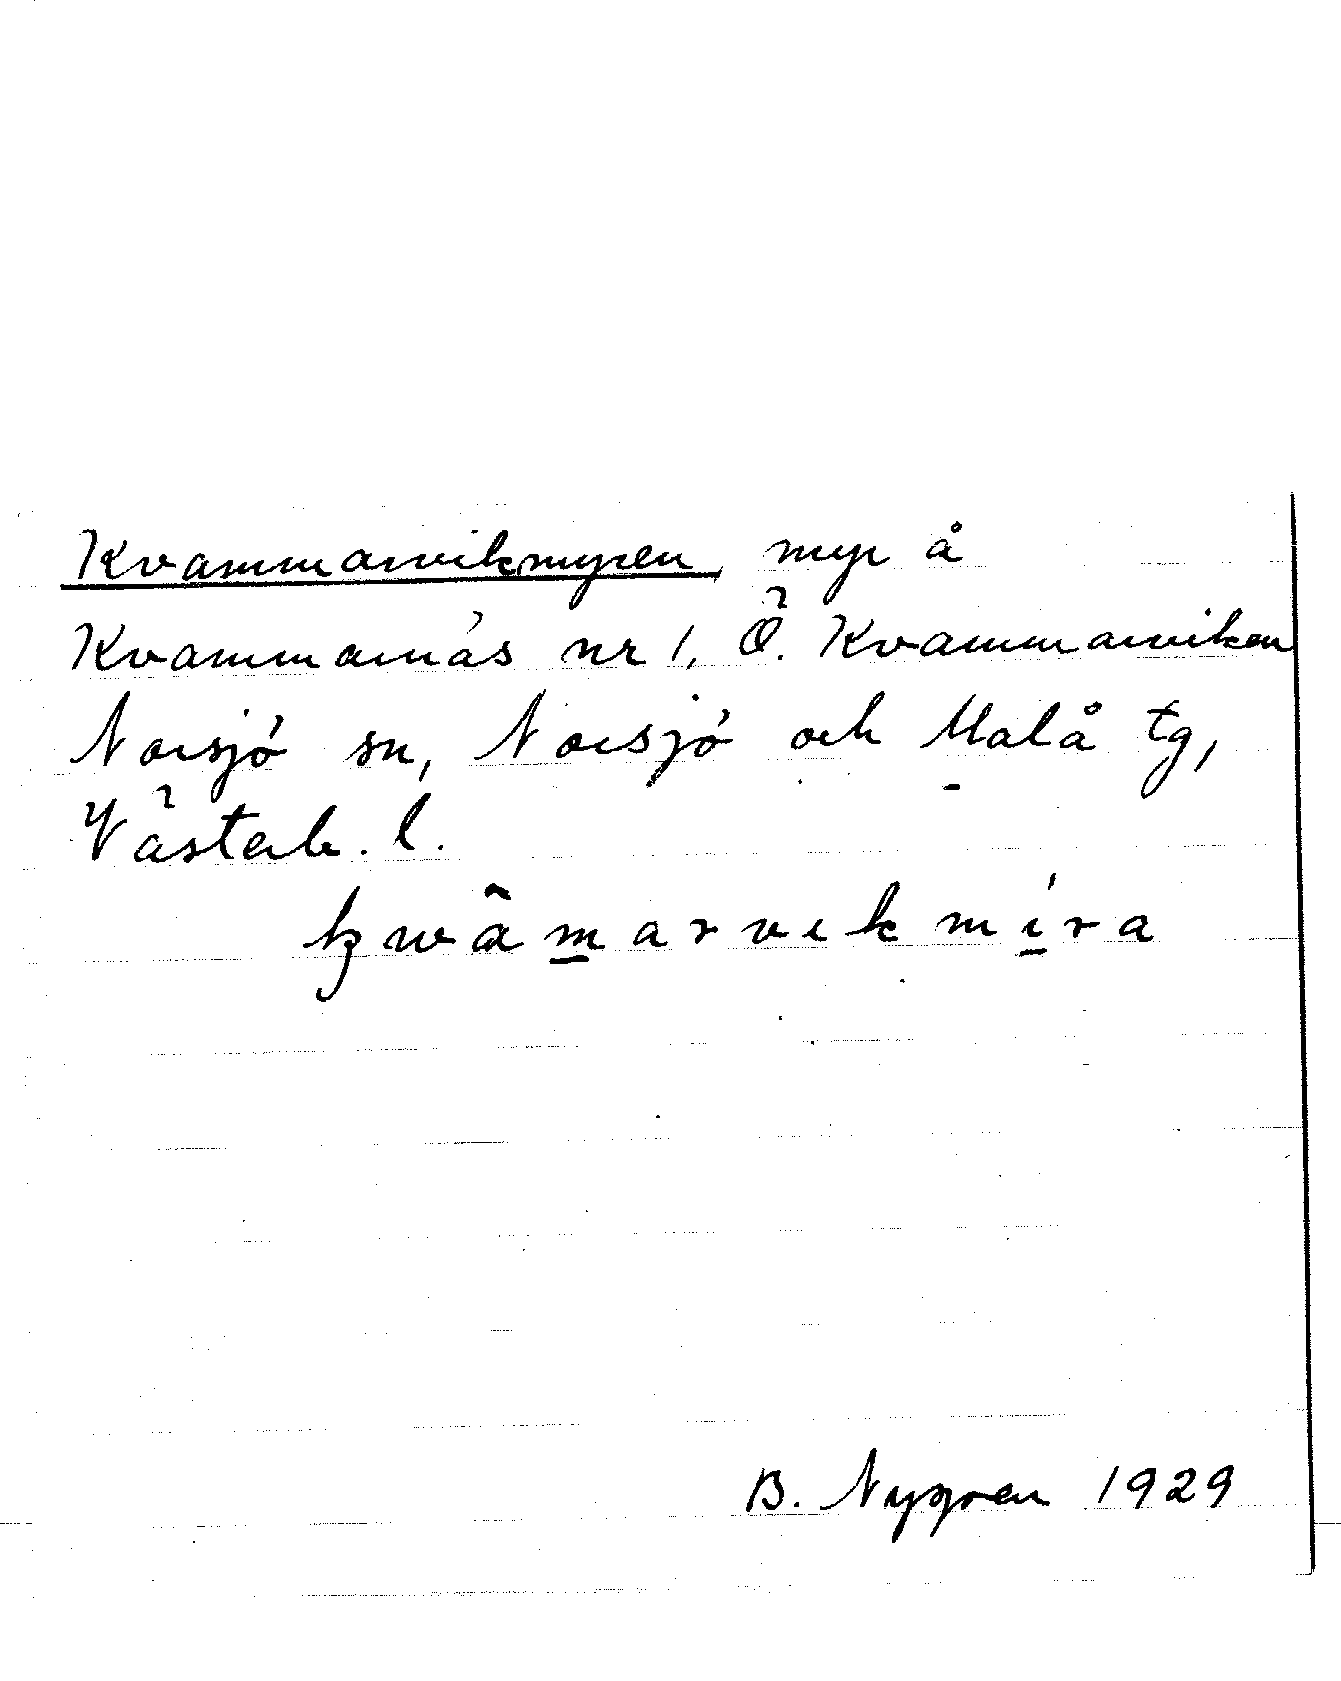 Kvammarvikmyren, myr å
Kvammarnäs nr 1, Ö. Kvammarviken
Norsjö sn, Norsjö och Malå tg,
Västerb. l.
kwâmarvikmíra
B. Nygren 1929